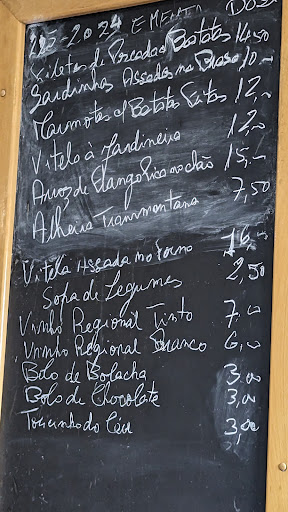 2024 EMENTA DOSE
Filetes de Pescada c/ Batatas 14,50
Sardinhas Assadas na Brasa 10,00
Marmotas c/ Batatas Fritas 12,00
Vitela à Jardineira 12,00
Arroz de Na chão 15,00
Alheira Transmontana 7,50
Vitela Assada no forno 16,00
Sopa de Legumes 2,50
Vinho Regional Tinto 7,00
Vinho Regional Branco 6,00
Bolo de Bolacha 3,00
Bolo de Chocolate 3,00
Toucinho do Céu 3,00